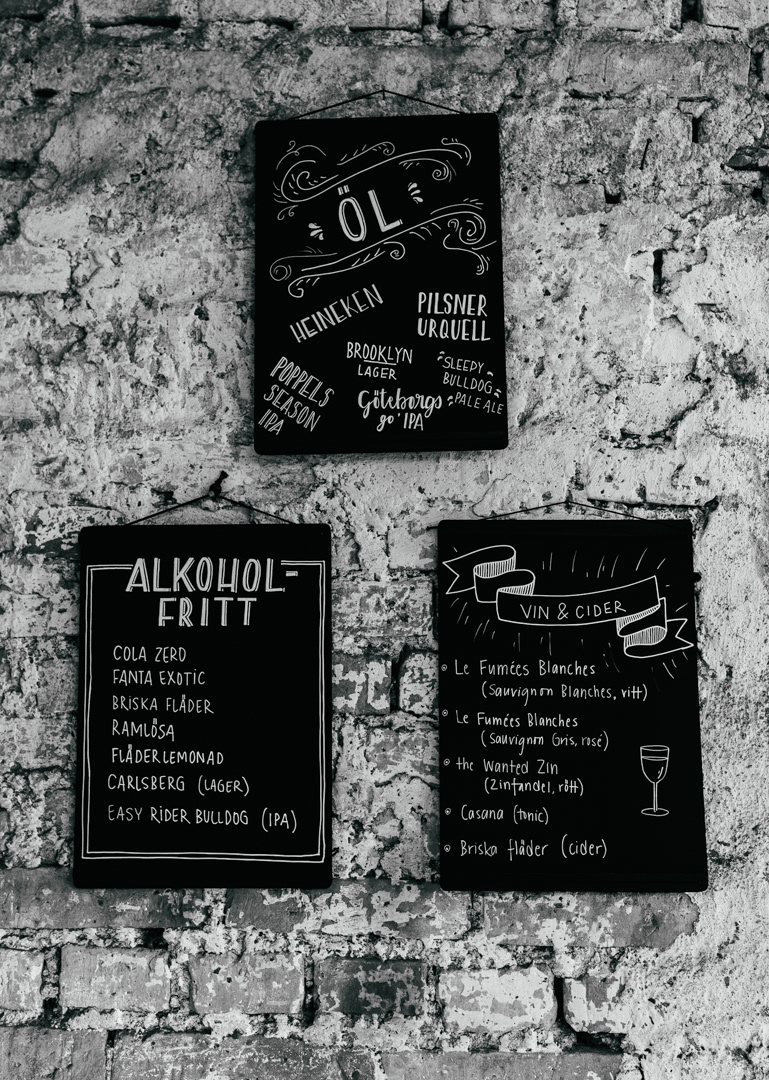 ÖL
HEINEKEN
PILSNER
URQUELL
BROOKLYN
LAGER
"SLEEPY
BULLDOG
PALE ALE
POPPELS
SEASON
IPA
Göteborgs
go' IPA
ALKOHOL-
FRITT
COLA ZERO
FANTA EXOTIC
BRISKA FLÄDER
RAMLÖSA
FLÄDERLEMONAD
CARLSBERG (LAGER)
EASY RIDER BULLDOG (IPA)
VIN & CIDER
Le Fumées Blanches
(Sauvignon Blanches, vitt)
Le Fumées Blanches
(Sauvignon Gris, rosé)
the Wanted Zin
(Zinfandel, rött)
Casana (tonic)
Briska fläder (cider)